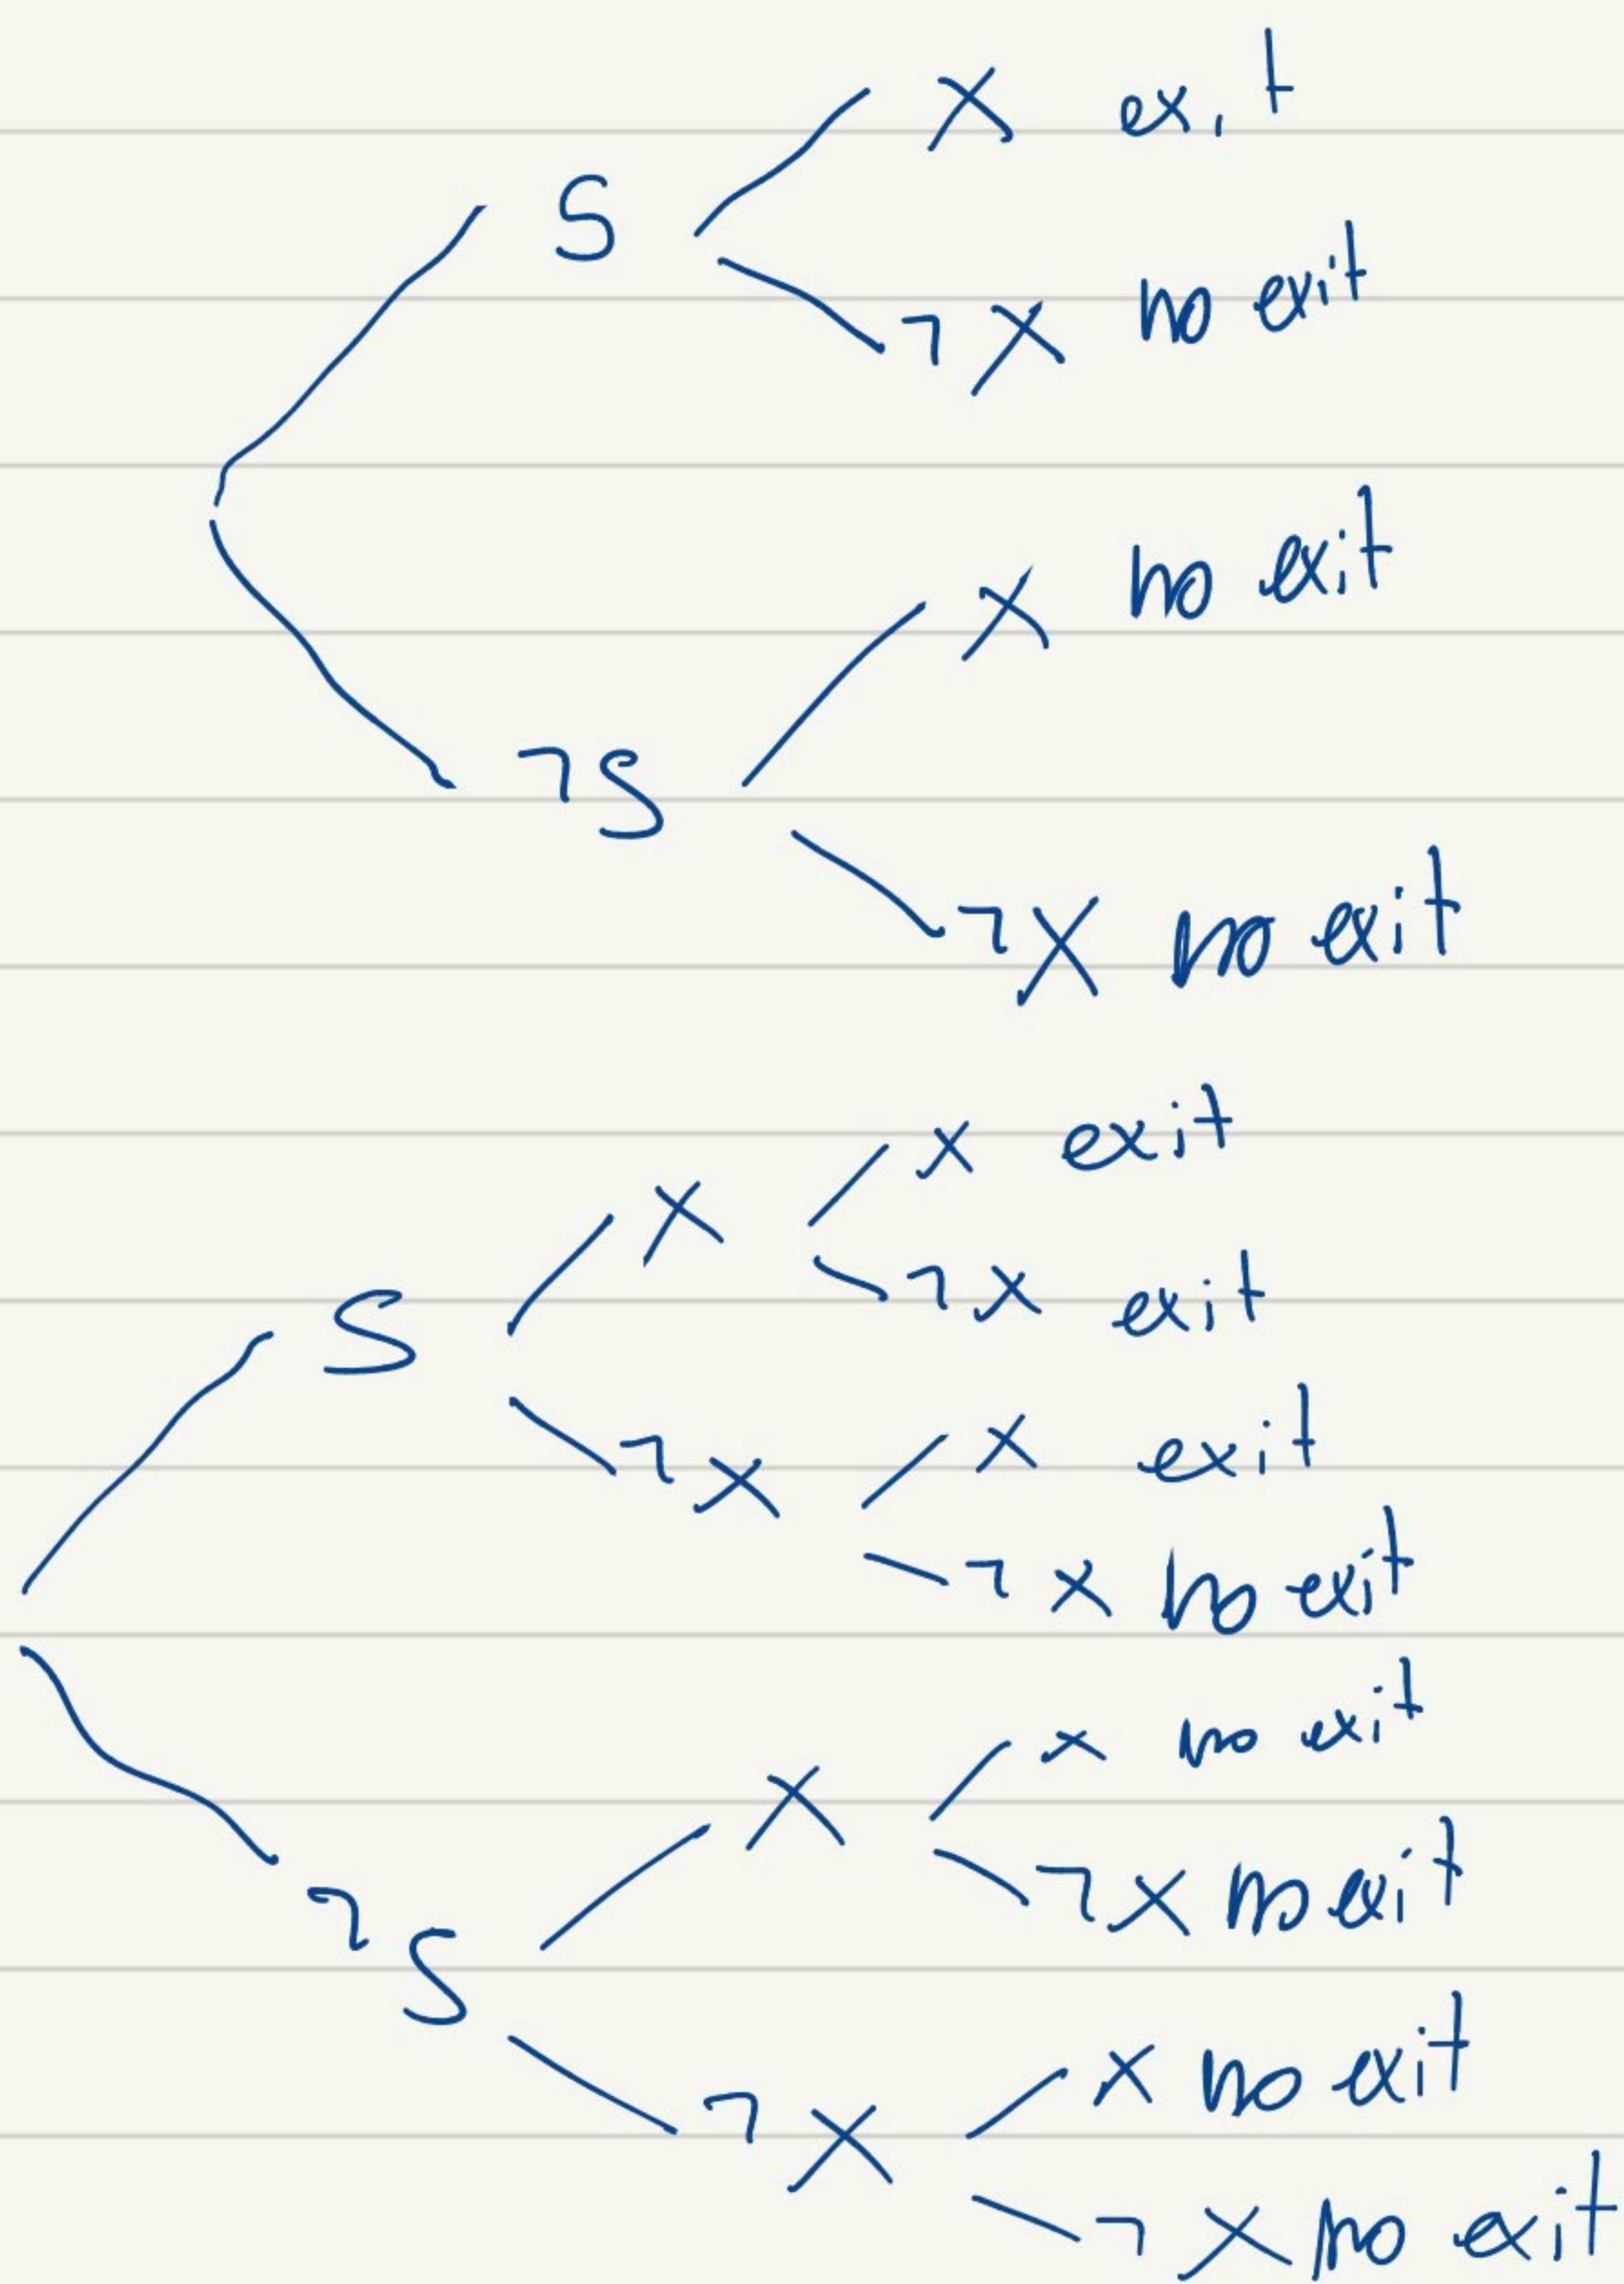 X exit
S
¬X no exit
X no exit
¬S
¬X no exit
x exit
X
¬x exit
S
x exit
¬x
¬x no exit
x no exit
X
¬x no exit
¬S
x no exit
¬X
¬x no exit